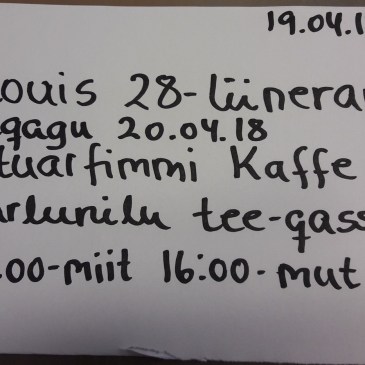 19.04.1
ouis 28-liinera
qagu 20.04.18
tuarfimmi Kaffe
arlunilu tee-qass
.00-miit 16:00-mut